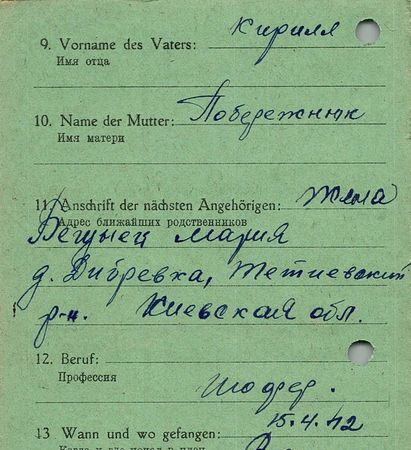 9. Vorname des Vaters: Кирилл
Имя отца
10. Name der Mutter: Побережнюк
Имя матери
11. Anschrift der nächsten Angehörigen: Жена
Адрес ближайших родственников
Мария
д. Дибревка, Тетиевский
р-н. Киевская обл.
12. Beruf:
Профессия
Шофер.
15.4.42
13 Wann und wo gefangen: